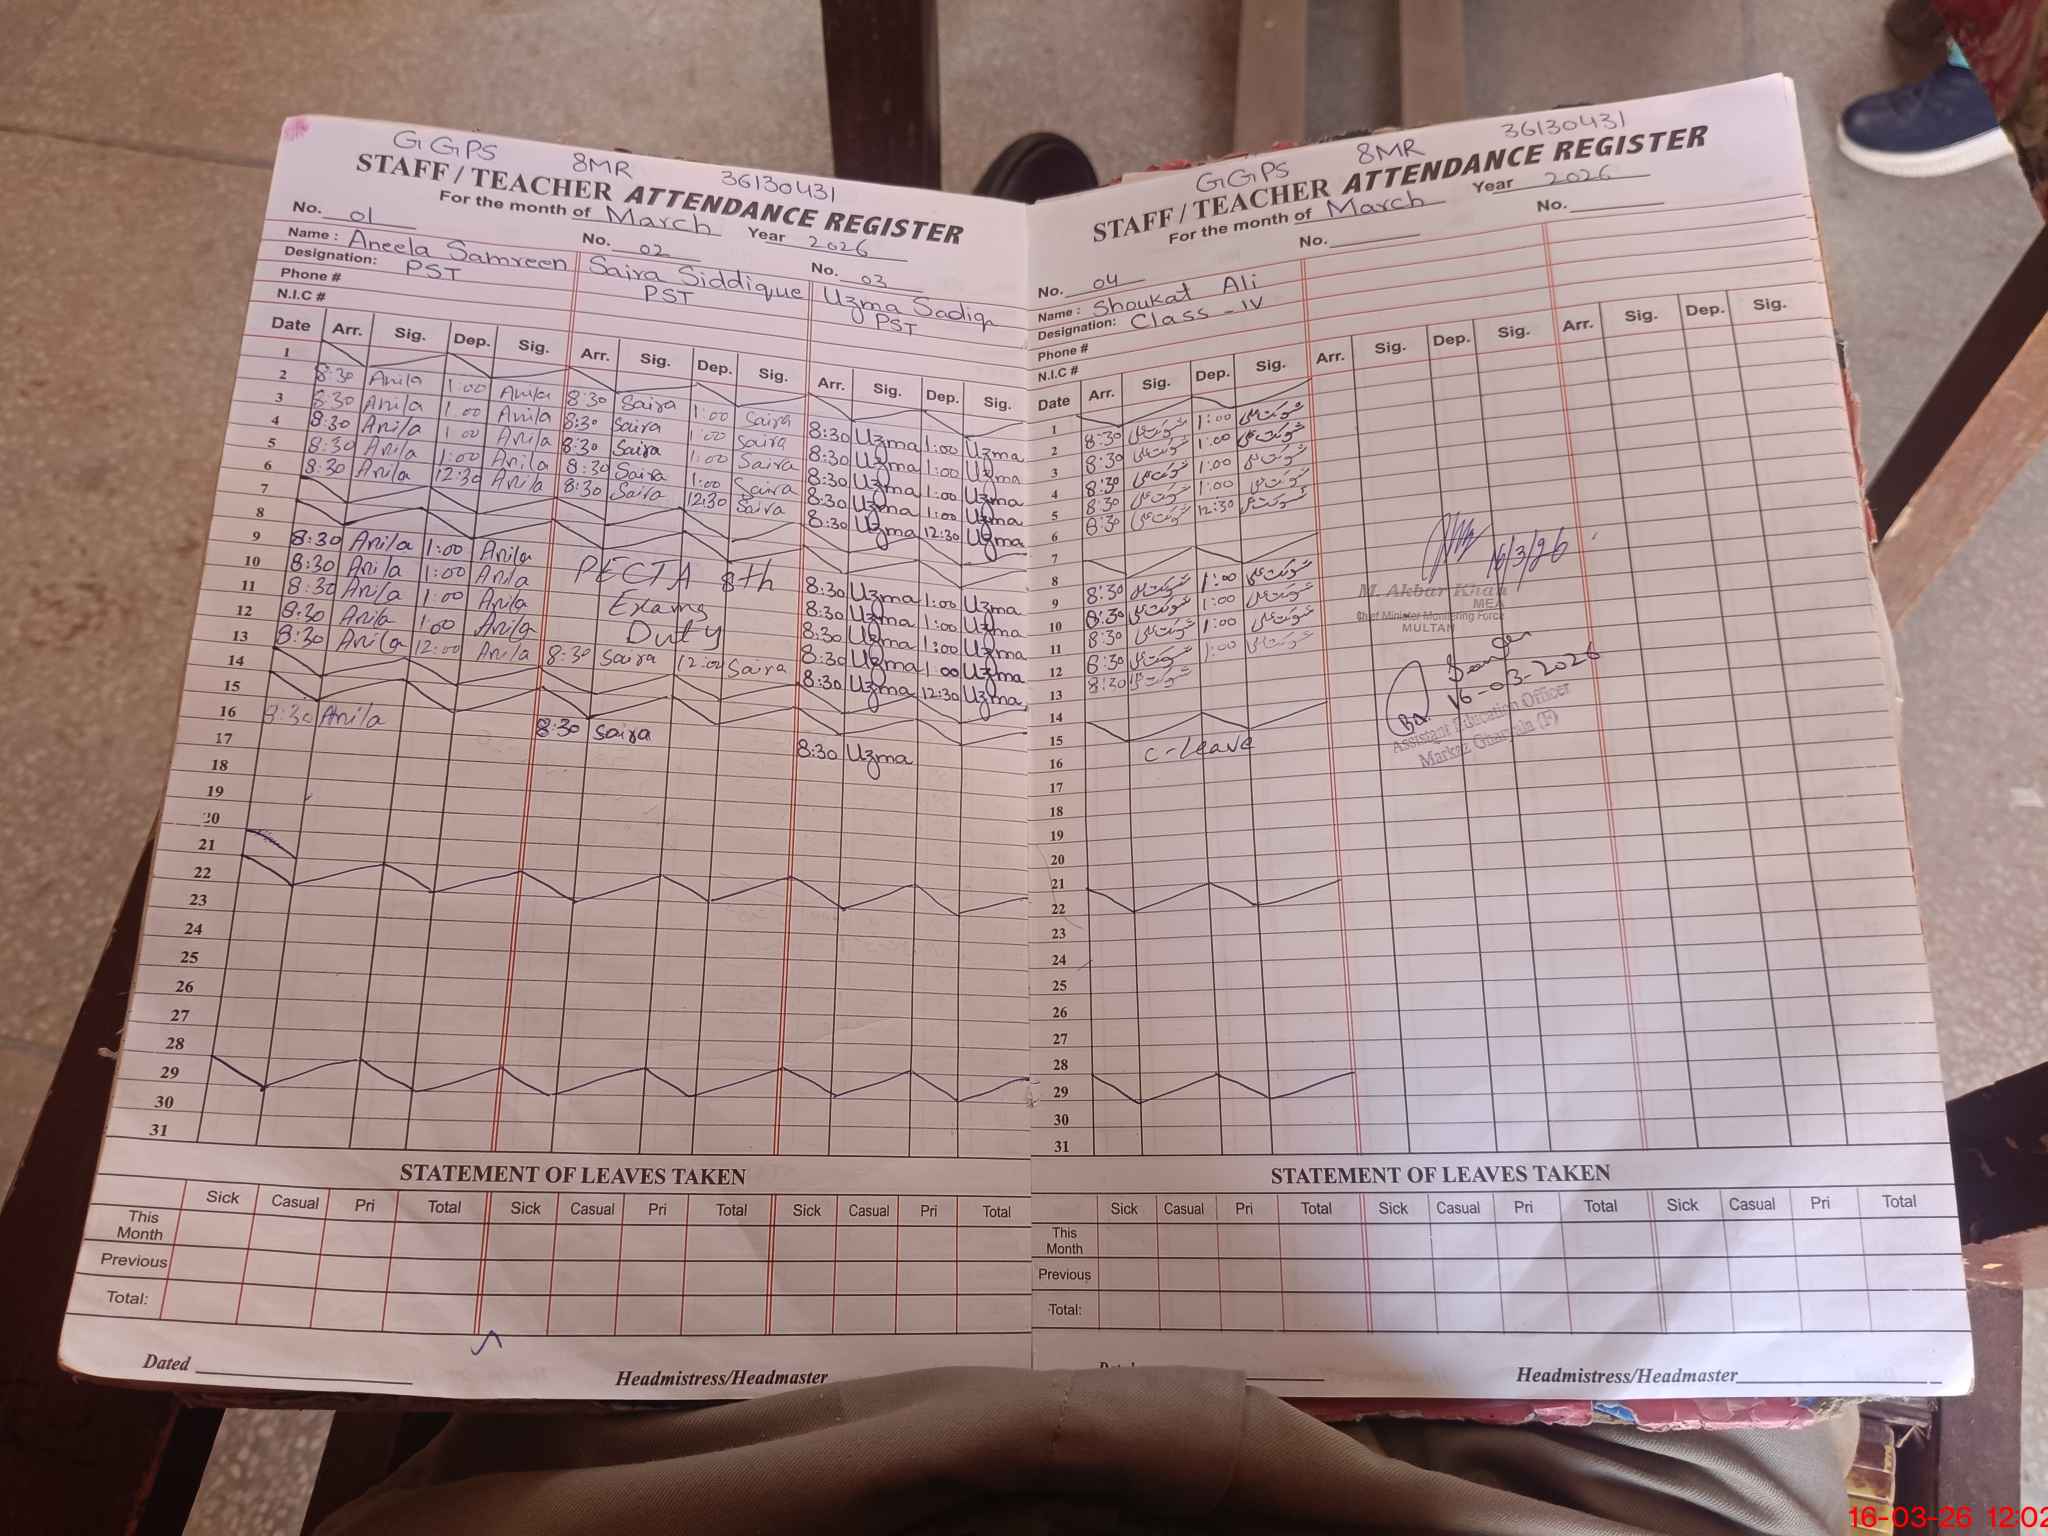 GGPS 8MR 36130431
STAFF / TEACHER ATTENDANCE REGISTER
For the month of March Year 2026
No. 01 No. 02 No. 03
Name: Aneela Samreen Saira Siddique Uzma Sadiq
Designation: PST PST PST
Phone #
N.I.C #
Date Arr. Sig. Dep. Sig. Arr. Sig. Dep. Sig. Arr. Sig. Dep. Sig.
1
2 8:30 Anila 1:00 Anila 8:30 Saira 1:00 Saira 8:30 Uzma 1:00 Uzma
3 8:30 Anila 1:00 Anila 8:30 Saira 1:00 Saira 8:30 Uzma 1:00 Uzma
4 8:30 Anila 1:00 Anila 8:30 Saira 1:00 Saira 8:30 Uzma 1:00 Uzma
5 8:30 Anila 1:00 Anila 8:30 Saira 1:00 Saira 8:30 Uzma 1:00 Uzma
6 8:30 Anila 12:30 Anila 8:30 Saira 12:30 Saira 8:30 Uzma 12:30 Uzma
7
8
9 8:30 Anila 1:00 Anila PECTA 8th 8:30 Uzma 1:00 Uzma
10 8:30 Anila 1:00 Anila Exams 8:30 Uzma 1:00 Uzma
11 8:30 Anila 1:00 Anila Duty 8:30 Uzma 1:00 Uzma
12 8:30 Anila 1:00 Anila 8:30 Uzma 1:00 Uzma
13 8:30 Anila 12:00 Anila 8:30 Saira 12:00 Saira 8:30 Uzma 12:30 Uzma
14
15
16 8:30 Anila 8:30 Saira 8:30 Uzma
17
18
19
20
21
22
23
24
25
26
27
28
29
30
31
STATEMENT OF LEAVES TAKEN
Sick Casual Pri Total Sick Casual Pri Total Sick Casual Pri Total
This Month
Previous
Total:
Dated Headmistress/Headmaster
GGPS 8MR 36130431
STAFF / TEACHER ATTENDANCE REGISTER
For the month of March Year 2026
No. 04 No. No.
Name: Shoukat Ali
Designation: Class-IV
Phone #
N.I.C #
Date Arr. Sig. Dep. Sig. Arr. Sig. Dep. Sig. Arr. Sig. Dep. Sig.
1
2 8:30 شوکت علی 1:00 شوکت علی
3 8:30 شوکت علی 1:00 شوکت علی
4 8:30 شوکت علی 1:00 شوکت علی
5 8:30 شوکت علی 1:00 شوکت علی
6 8:30 شوکت علی 12:30 شوکت علی
7
8
9 8:30 شوکت علی 1:00 شوکت علی
10 8:30 شوکت علی 1:00 شوکت علی
11 8:30 شوکت علی 1:00 شوکت علی
12 8:30 شوکت علی 1:00 شوکت علی
13 8:30 شوکت علی
14
15
16 C-Leave
17
18
19
20
21
22
23
24
25
26
27
28
29
30
31
16/3/26
M. Akbar Khan
MEA
Chief Minister Monitoring Force
MULTAN
16-03-2026
Assistant Education Officer
Markaz (F)
STATEMENT OF LEAVES TAKEN
Sick Casual Pri Total Sick Casual Pri Total Sick Casual Pri Total
This Month
Previous
Total:
Headmistress/Headmaster
16-03-26 12:02